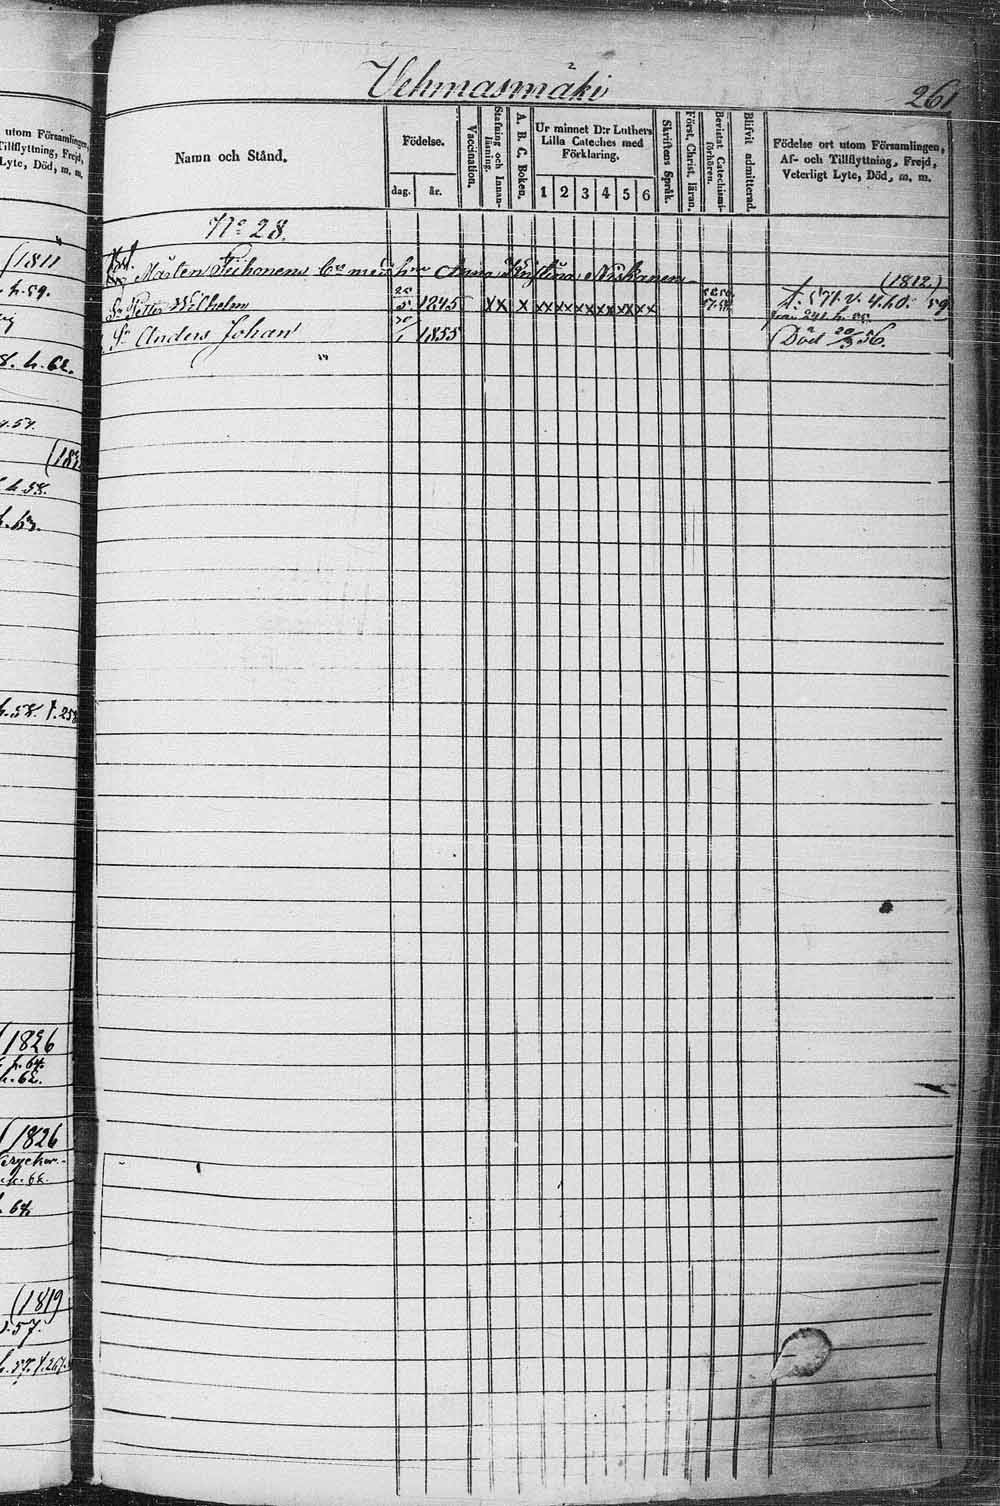 utom Församlingen,
Tillflyttning, Frejd,
Lyte, Död, m. m.
(1811
h. 59.
h. 62.
57.
h. 58.
h. 63.
h. 58. f. 258
(1826
h. 64.
h. 62.
(1826
h. 62.
64
(1819
57.
h. 57. f. 267.
Vehmasmäki
261
Namn och Stånd.
Födelse.
dag.
år.
Vaccination.
Stafning och Innan-
läsning.
A. B. C. Boken.
Ur minnet D:r Luthers
Lilla Cateches med
Förklaring.
1 2 3 4 5 6
Skriftens Språk.
Först. Christ. läran.
Bevistat Catechismi-
förhören.
Blifvit admitterad.
Födelse ort utom Församlingen,
Af- och Tillflyttning, Frejd,
Veterligt Lyte, Död, m. m.
No 28.
Mårten Tiihonens med Anna Kristina Niskanen (1812.)
Sn Petter Wilhelm 1845 x x x x x x x x x x x x x x x f. 571. v. 4. h. 59
från 241 h. 55.
Sn Anders Johan 1855 Död 20/3 56.